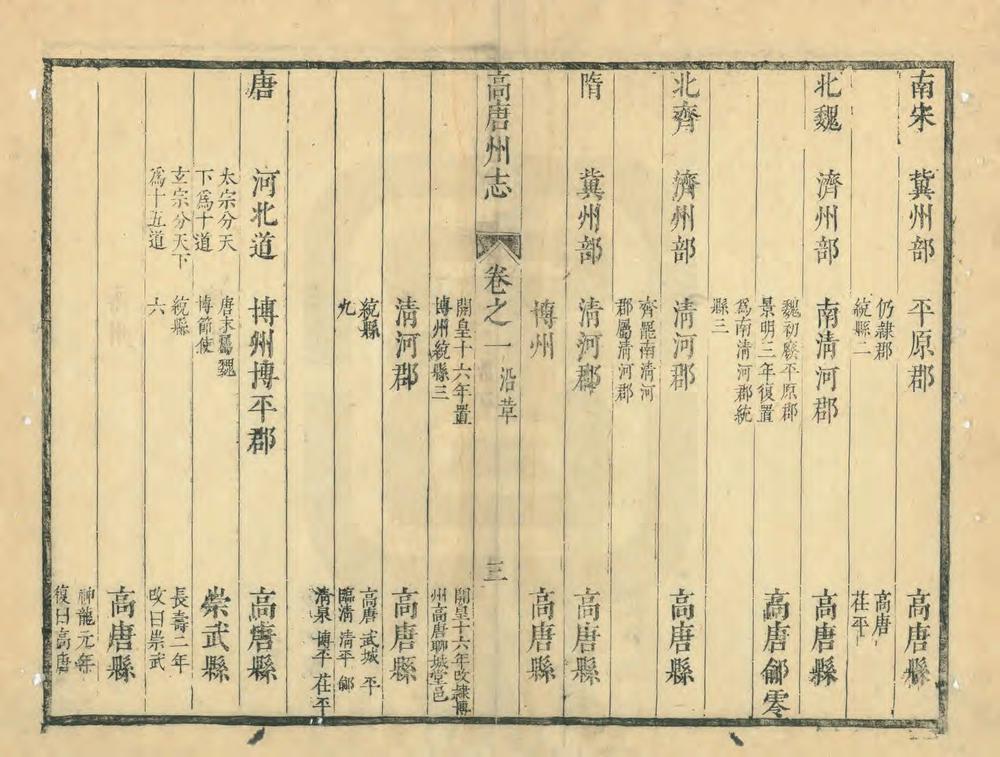 南宋 冀州部 平原郡 高唐縣
仍隸郡 高唐
統縣二 茌平
北魏 濟州部 南清河郡 高唐縣
魏初廢平原郡
景明三年復置 高唐 鄃 零
為南清河郡統
縣三
北齊 濟州部 清河郡 高唐縣
齊罷南清河
郡屬清河郡
隋 冀州部 清河郡 高唐縣
博州 高唐縣
高唐州志 卷之一 沿革 三
開皇十六年置 開皇十六年改隸博
博州統縣三 州高唐聊城堂邑
清河郡 高唐縣
統縣 高唐 武城 平
九 臨清 清平 鄃
清泉 博平 茌平
唐 河北道 博州博平郡 高唐縣
太宗分天 唐末為魏
下為十道 博節使 崇武縣
玄宗分天下 統縣 長壽二年
為十五道 六 改曰崇武
高唐縣
神龍元年
復曰高唐